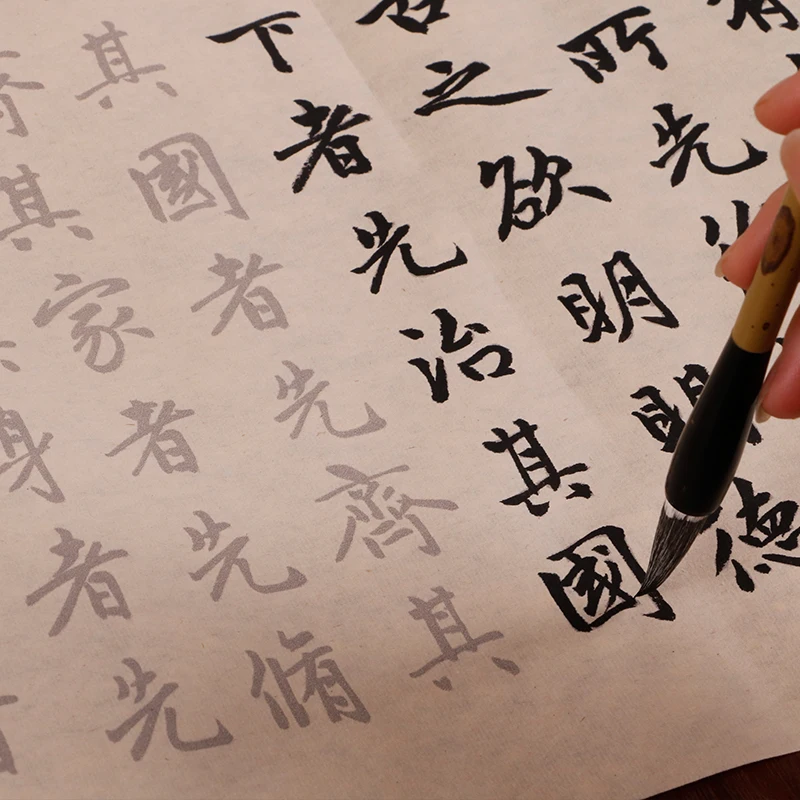 有
所先
古之欲明明德
下者先治其國
其國者先齊其
齊其家者先脩
身者先